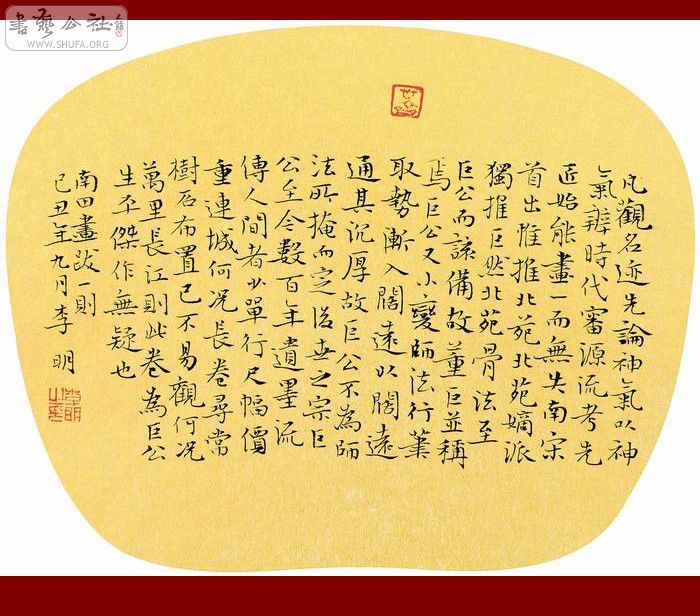 書藝公社
WWW.SHUFA.ORG
凡觀名迹先論神氣以神
氣辨時代審源流考先
匠始能畫一而無失南宋
首出惟推北苑北苑嫡派
獨推巨然北苑骨法至
巨公而該備故董巨並稱
焉巨公又小變師法行筆
取勢漸入闊遠以闊遠
通其沉厚故巨公不為師
法所掩而定後世之宗巨
公至今數百年遺墨流
傳人間者少單行尺幅價
重連城何況長卷尋常
樹石布置已不易觀何況
萬里長江則此卷為巨公
生平傑作無疑也
南田畫跋一則
己丑年九月李明